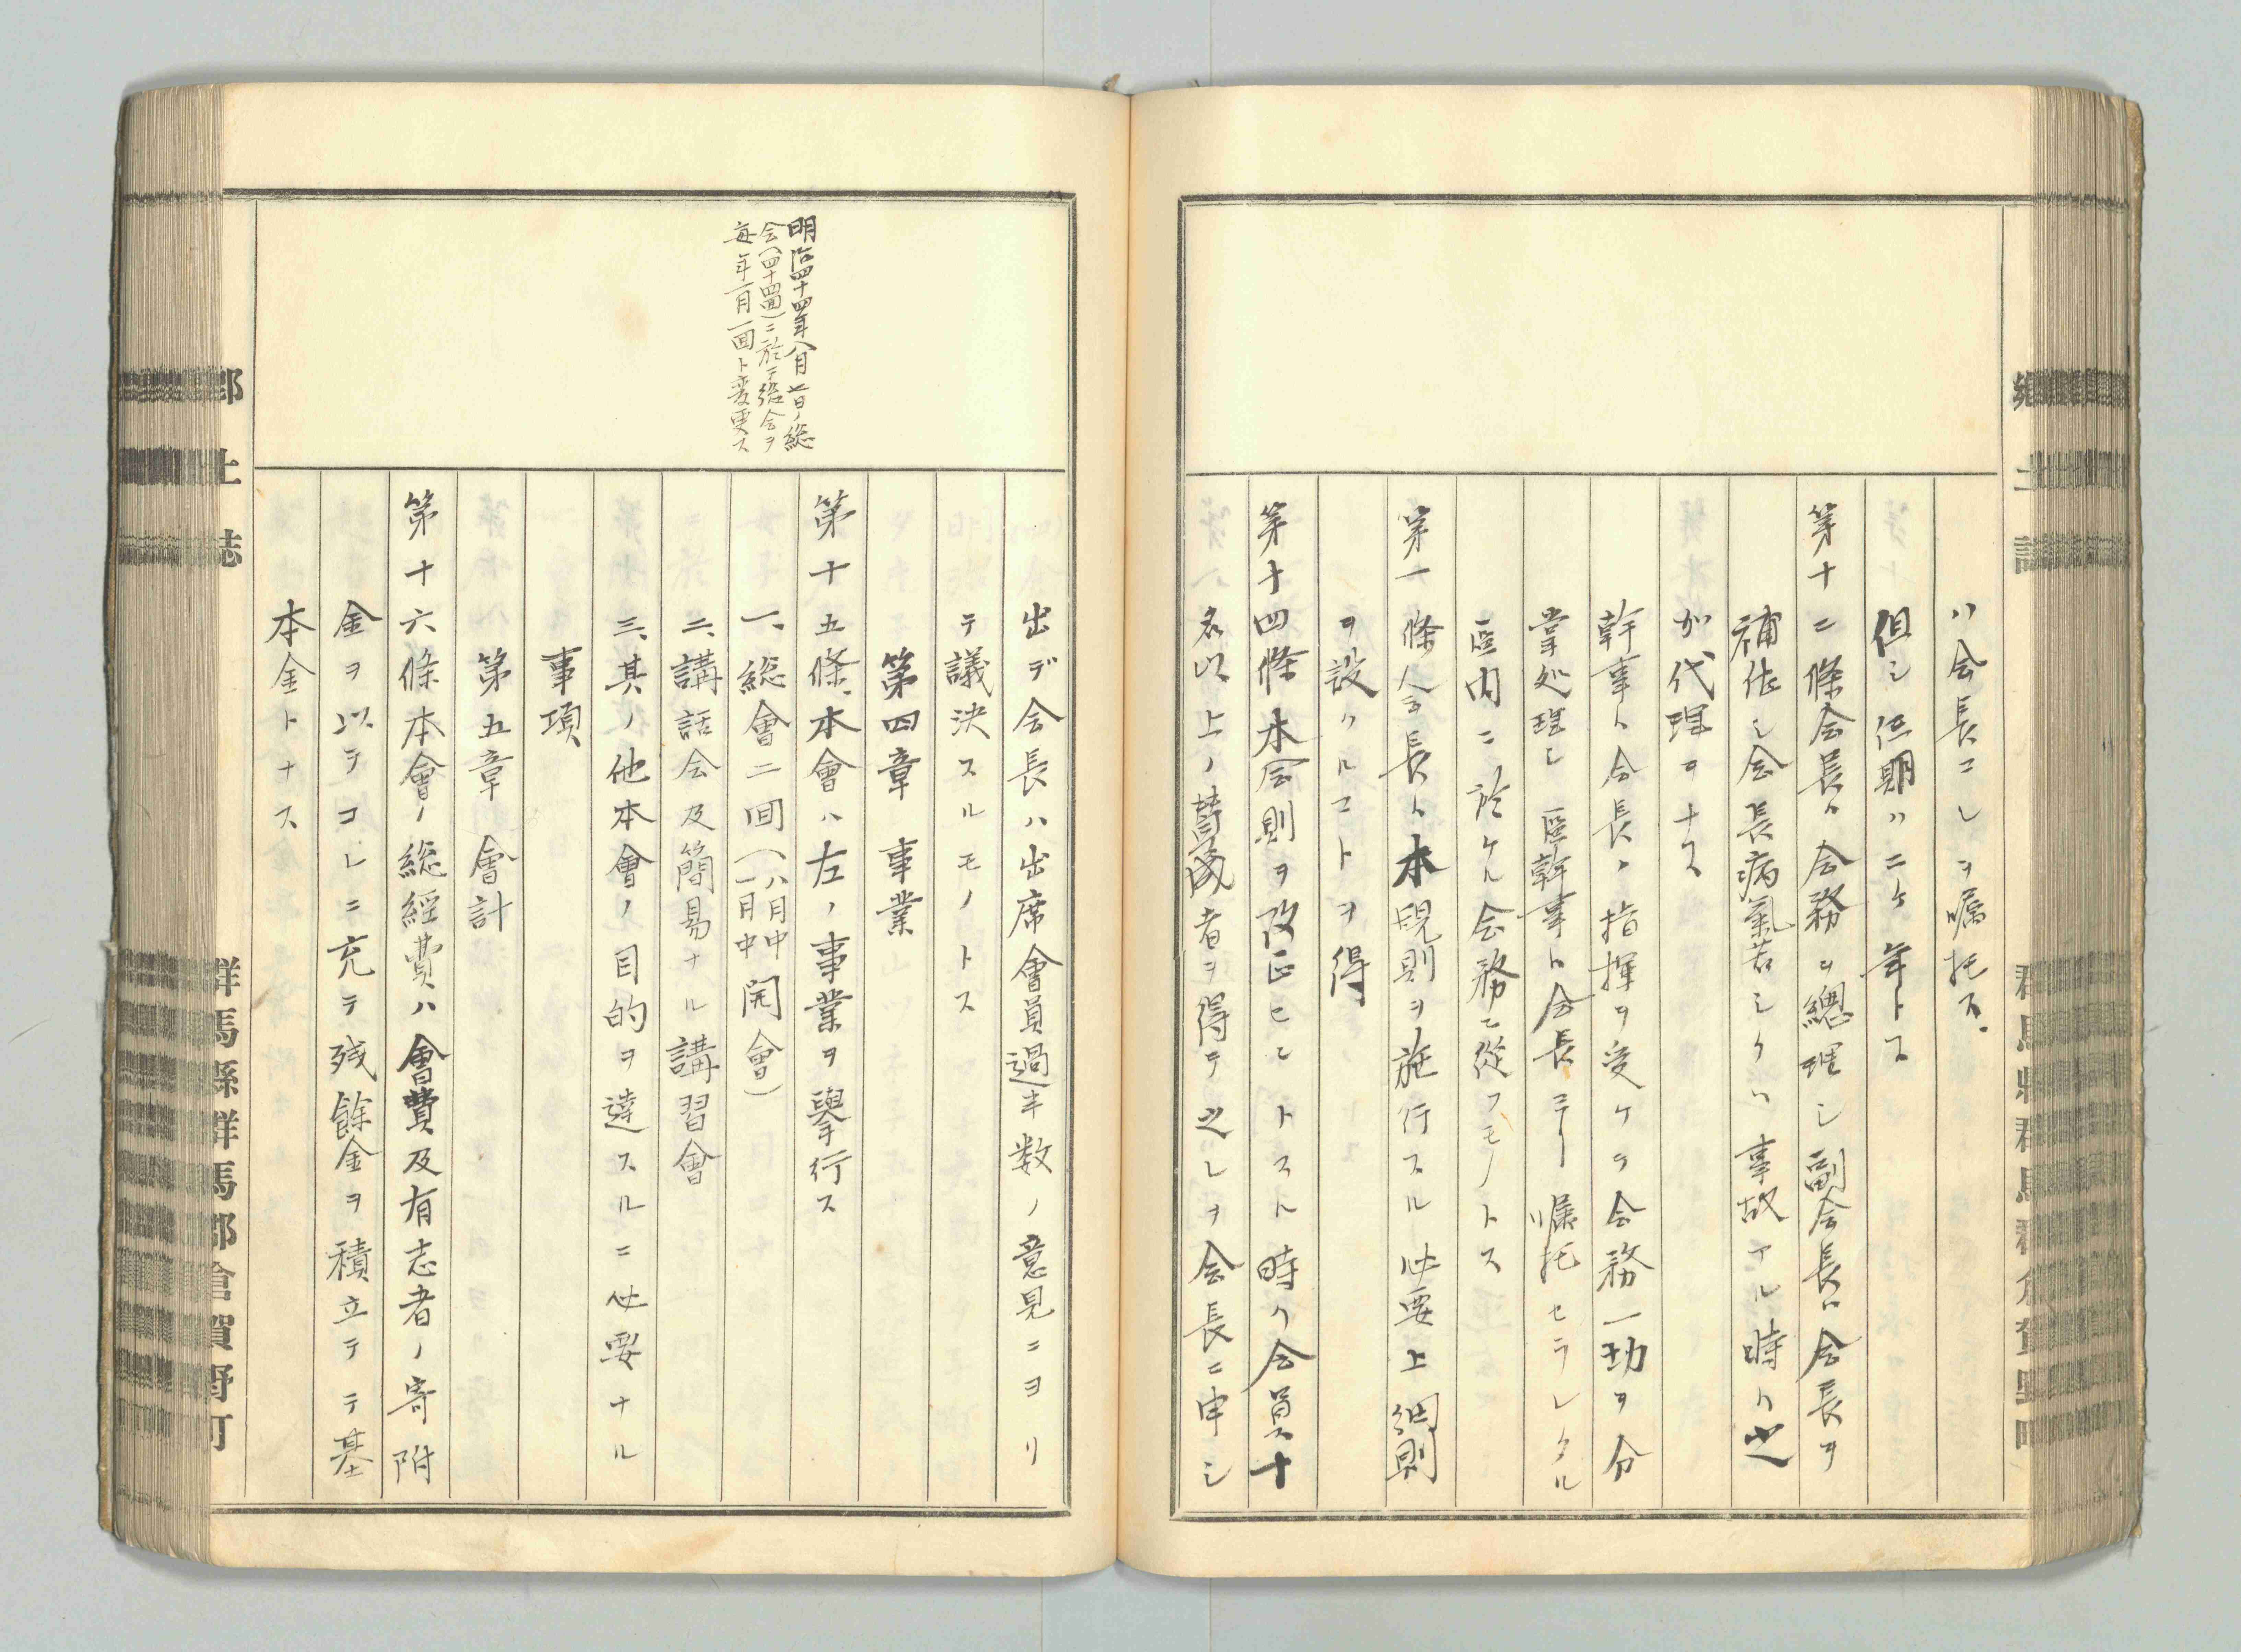 郷土誌
群馬縣群馬郡倉賀野町
ハ会長コレヲ嘱托ス
但シ任期ハ二ケ年トス
第十二條会長ハ会務ヲ總理シ副会長ハ会長ヲ
補佐シ会長病氣若シクハ事故アル時ハ之
カ代理ヲナス
幹事ハ会長ノ指揮ヲ受ケテ会務一切ヲ分
掌処理シ區幹事ハ会長ヨリ嘱托セラレタル
區内ニ於ケル会務ニ從フモノトス
第一條会長ハ本規則ヲ施行スル必要上細則
ヲ設クルコトヲ得
第十四條本会則ヲ改正セントスル時ハ会員ハ十
名以上ノ賛成者ヲ得テ之レヲ会長ニ申シ
明治四十四年八月廿日ノ総
会(四十四回)ニ於テ総会ヲ
毎年一月一回ト変更ス
出デ会長ハ出席會員過半数ノ意見ニヨリ
テ議決スルモノトス
第四章 事業
第十五條、本會ハ左ノ事業ヲ擧行ス
一、総會二回(八月中一月中開會)
二、講話会及簡易ナル講習會
三、其ノ他本會ノ目的ヲ達スルニ必要ナル
事項
第五章 會計
第十六條本會ノ総経費ハ會費及有志者ノ寄附
金ヲ以テコレニ充テ残餘金ヲ積立テテ基
本金トナス
郷土誌
群馬縣群馬郡倉賀野町